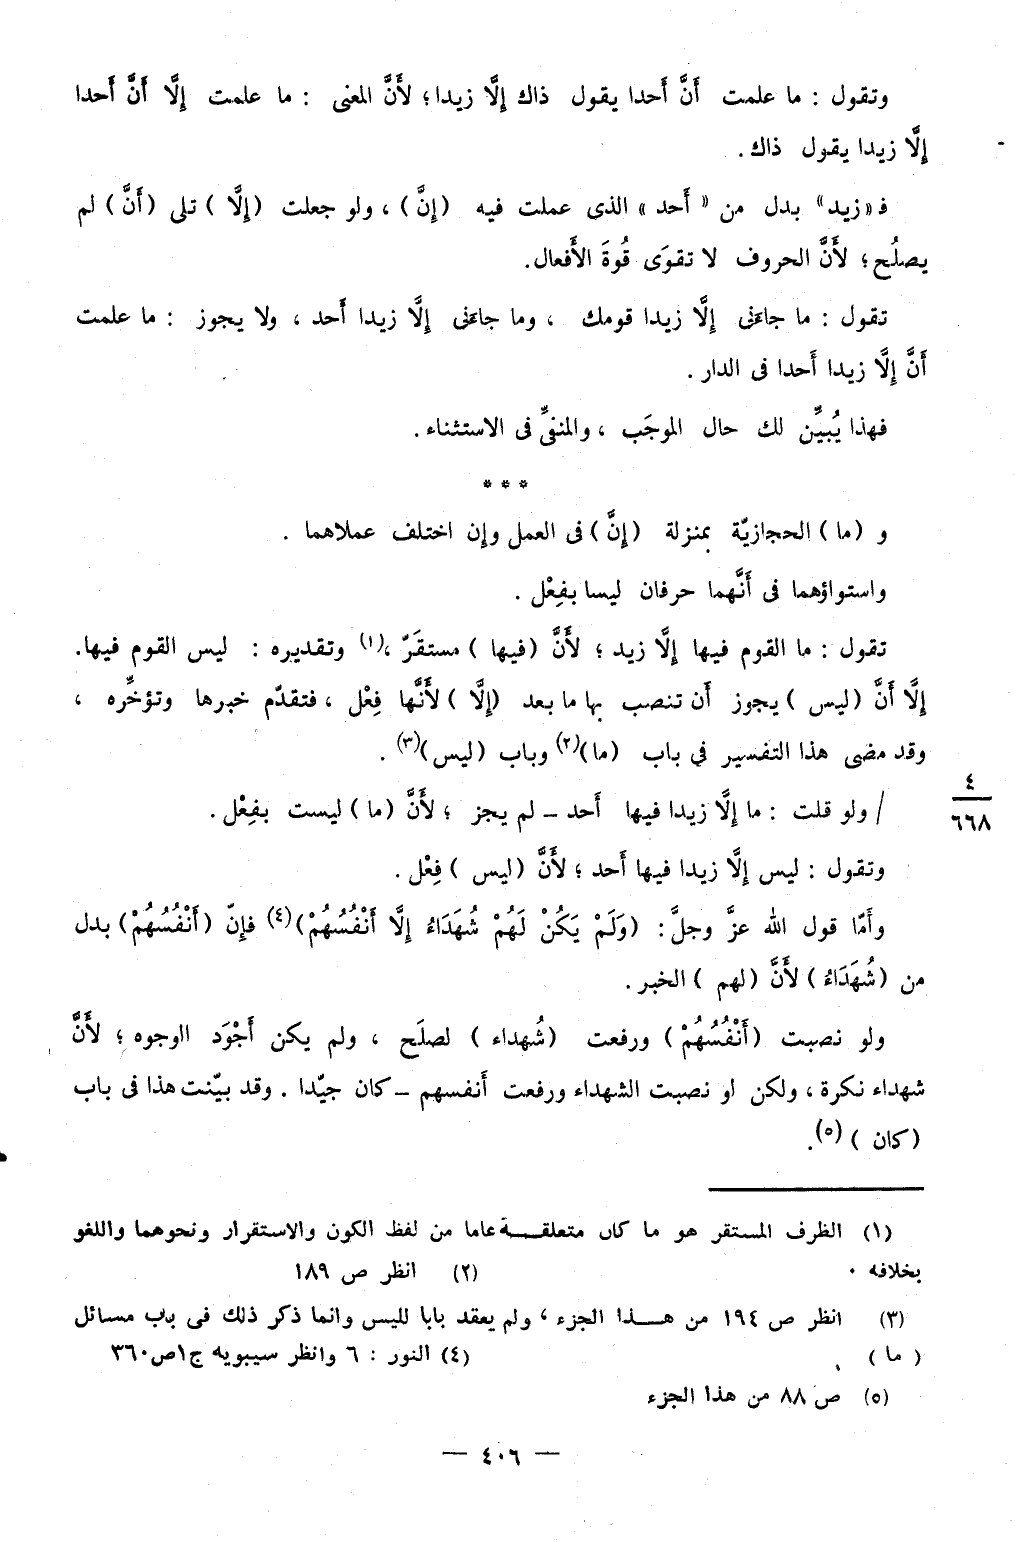 وتقول : ما علمت أَنَّ أَحدا يقول ذاك إِلَّا زيدا ؛ لأَنَّ المعنى : ما علمت إِلَّا أَنَّ أَحدا
إِلَّا زيدا يقول ذاك .
فـ «زيد» بدل من « أَحد » الذى عملت فيه (إِنَّ) ، ولو جعلت (إِلَّا ) تلى (أَنَّ) لم
يصلُح ؛ لأَنَّ الحروف لا تقوَى قُوةَ الأَفعال.
تقول : ما جاءَنى إِلَّا زيدا قومك ، وما جاءَنى إِلَّا زيدا أَحد ، ولا يجوز : ما علمت
أَنَّ إِلَّا زيدا أَحدا فى الدار .
فهذا يُبيِّن لك حال الموجَب ، والمنفىِّ فى الاستثناء .
* * *
و (ما ) الحجازيّة بمنزلة (إِنَّ ) فى العمل وإِن اختلف عملاهما .
واستواؤهما فى أَنَّهما حرفان ليسا بفِعْل .
تقول : ما القوم فيها إِلَّا زيد ؛ لأَنَّ (فيها ) مستقَرّ ،(١) وتقديره : ليس القوم فيها.
إِلَّا أَنَّ (ليس ) يجوز أَن تنصب بها ما بعد (إِلَّا ) لأَنَّها فِعْل ، فتقدّم خبرها وتؤخِّره ،
وقد مضى هذا التفسير في باب (ما)(٢) وباب (ليس)(٣) .
٤
٦٦٨
/ ولو قلت : ما إِلَّا زيدا فيها أَحد – لم يجز ؛ لأَنَّ (ما ) ليست بفِعْل .
وتقول : ليس إِلَّا زيدا فيها أَحد ؛ لأَنَّ (ليس ) فِعْل .
وأَمّا قول الله عزَّ وجلَّ : (وَلَمْ يَكُنْ لَهُمْ شُهَدَاءُ إِلَّا أَنْفُسُهُمْ)(٤) فإِنّ (أَنْفُسُهُمْ) بدل
من (شُهَدَاءُ ) لأَنَّ (لهم ) الخبر .
ولو نصبت (أَنْفُسُهُمْ ) ورفعت (شُهداء ) لصلَح ، ولم يكن أَجْوَد الوجوه ؛ لأَنَّ
شهداء نكرة ، ولكن او نصبت الشهداء ورفعت أَنفسهم – كان جيّدا . وقد بيّنت هذا فى باب
(كان ) (٥).
(١) الظرف المستقر هو ما كان متعلقـــة عاما من لفظ الكون والاستقرار ونحوهما واللغو
بخلافه . (٢) انظر ص ١٨٩
(٣) انظر ص ١٩٤ من هـــذا الجزء ، ولم يعقد بابا لليس وانما ذكر ذلك فى باب مسائل
( ما ) (٤) النور : ٦ وانظر سيبويه ج١ص٣٦٠
(٥) ص ٨٨ من هذا الجزء
— ٤٠٦ —